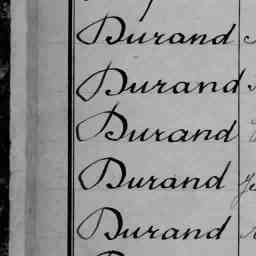 Durand
Durand
Durand
Durand
Durand